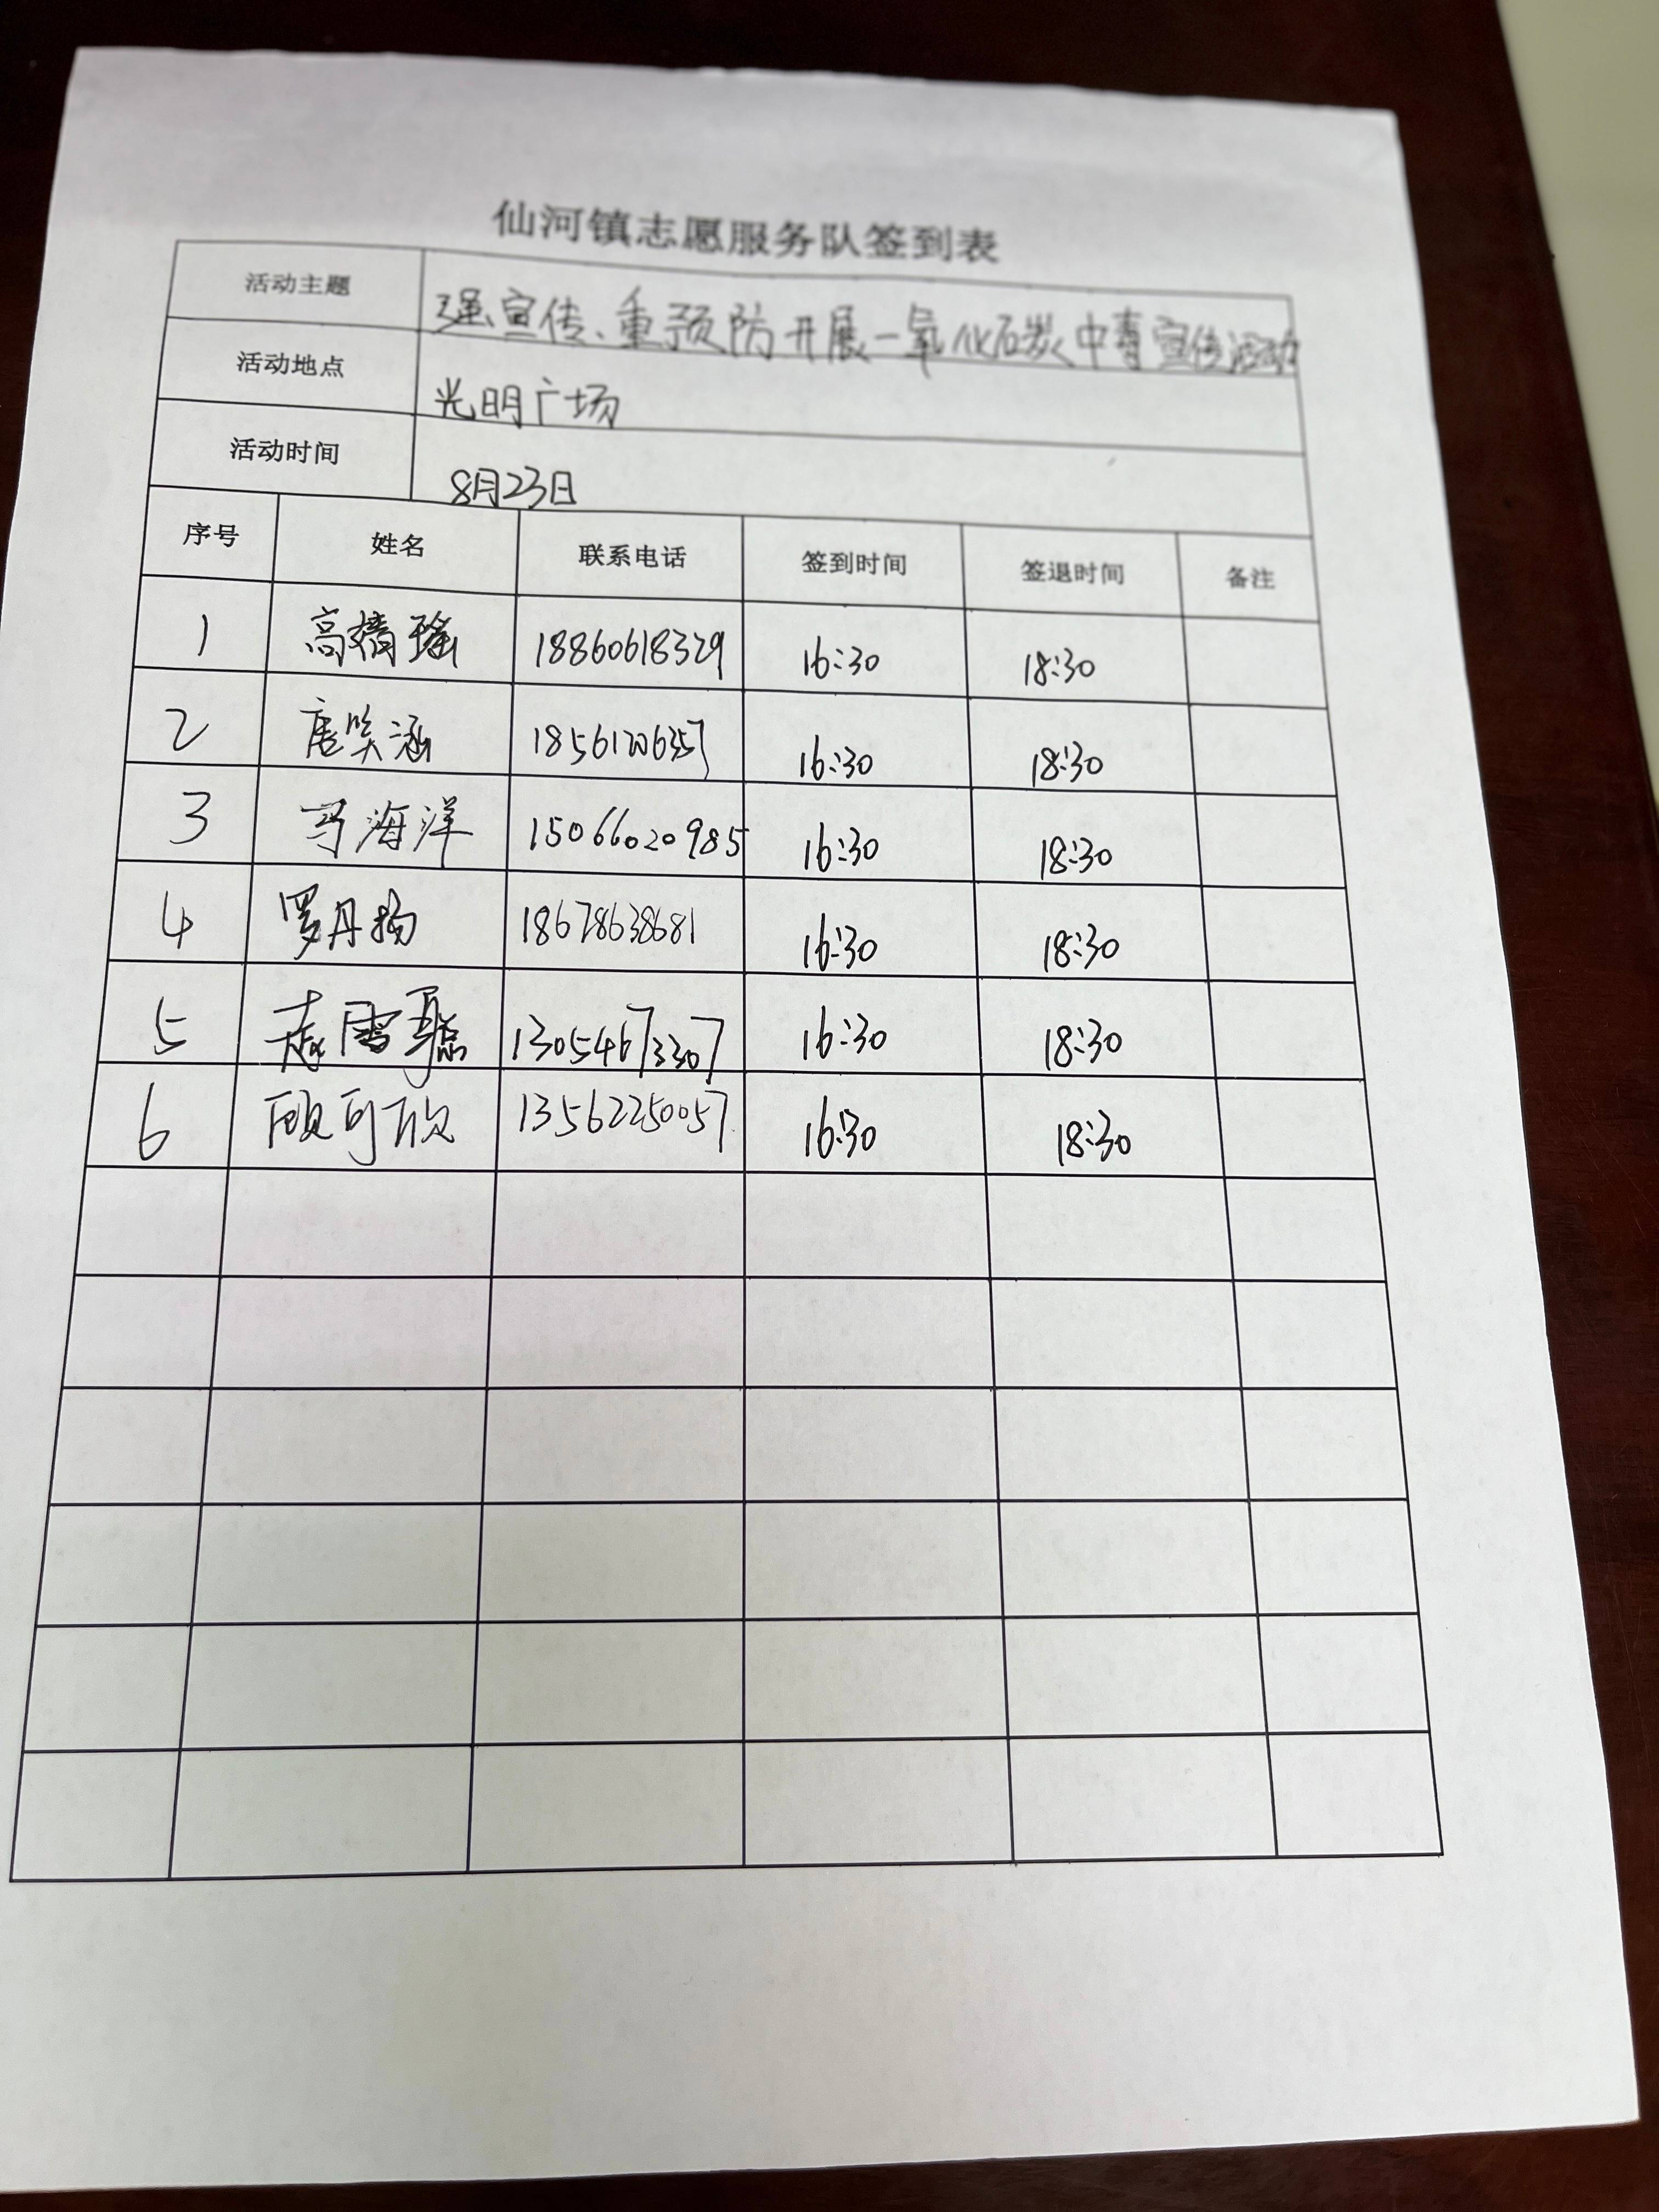 仙河镇志愿服务队签到表
活动主题 强宣传、重预防开展一氧化碳中毒宣传活动
活动地点 光明广场
活动时间 8月23日
序号 姓名 联系电话 签到时间 签退时间 备注
1 高婧瑶 18860618329 16:30 18:30
2 唐笑涵 18561206357 16:30 18:30
3 马海洋 15066020985 16:30 18:30
4 罗丹扬 18678638681 16:30 18:30
5 13054673307 16:30 18:30
6 顾可欣 13562250057 16:30 18:30